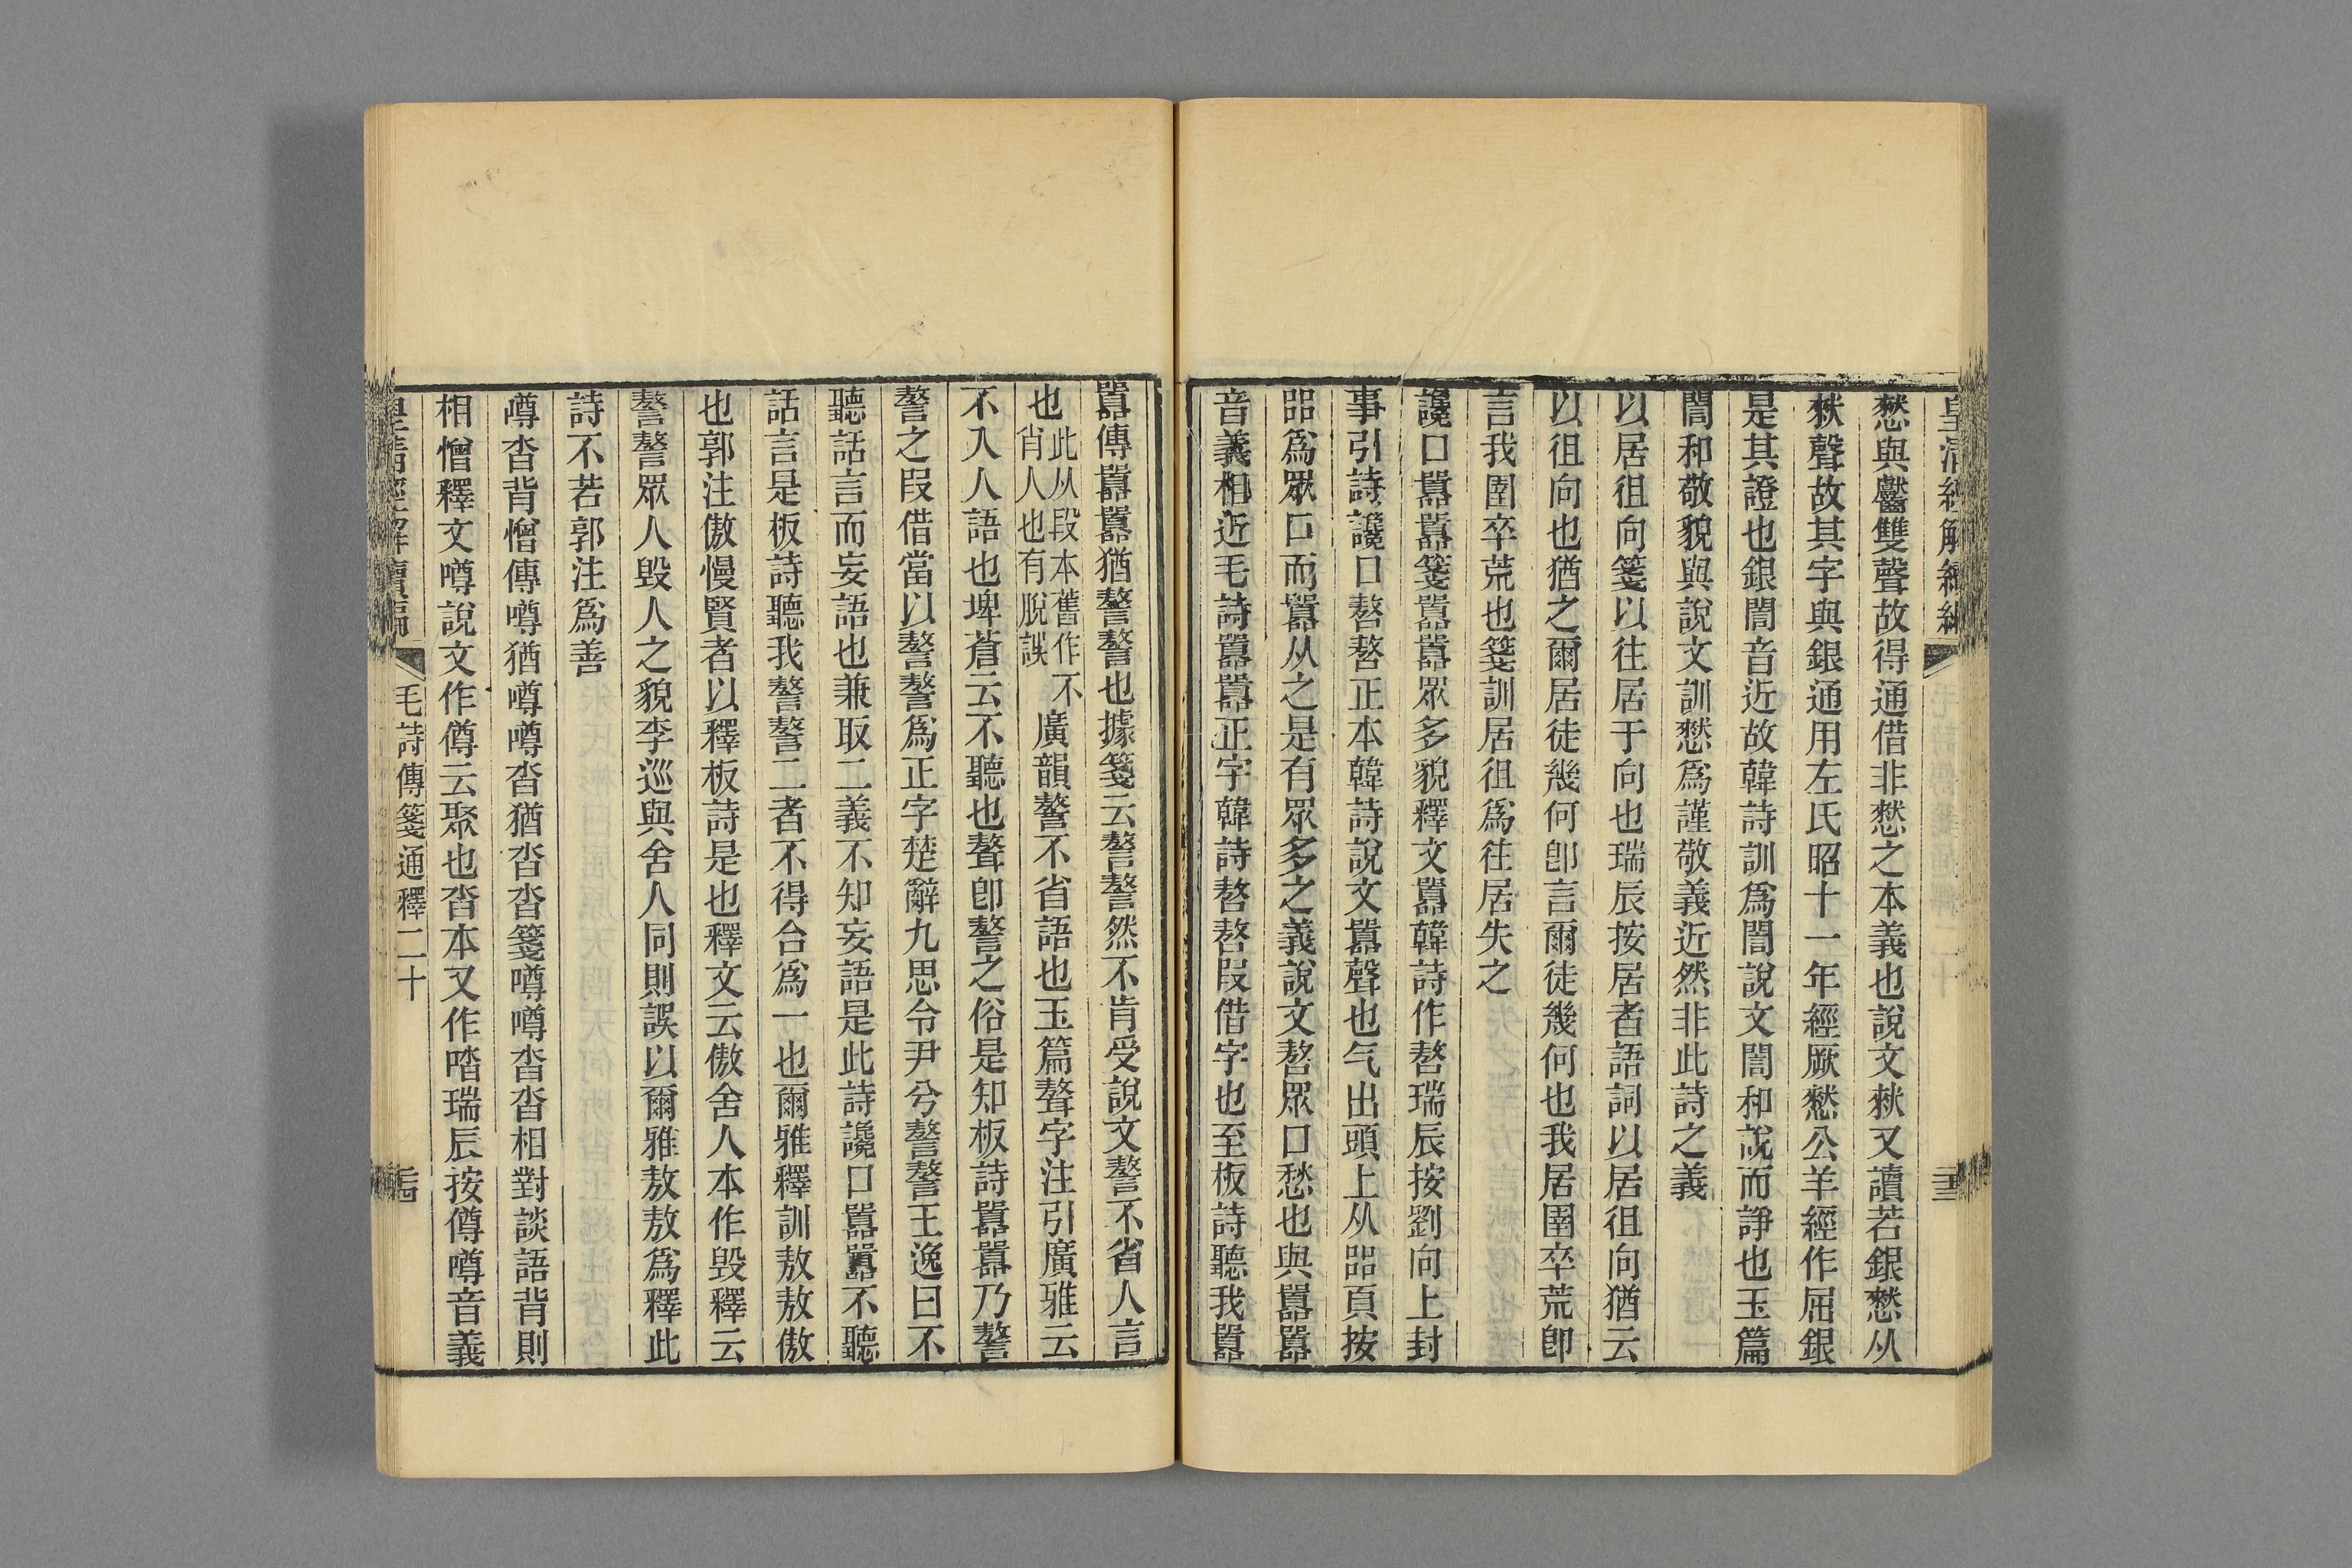 皇清經解續編
憖與齾雙聲故得通借非憖之本義也說文猌又讀若銀憖从
猌聲故其字與銀通用左氏昭十一年經厥憖公羊經作屈銀
是其證也銀誾音近故韓詩訓爲誾說文誾和說而諍也玉篇
誾和敬貌與說文訓憖爲謹敬義近然非此詩之義
以居徂向箋以往居于向也瑞辰按居者語詞以居徂向猶云
以徂向也猶之爾居徒幾何卽言爾徒幾何也我居圉卒荒卽
言我圉卒荒也箋訓居徂爲往居失之
讒口囂囂箋囂囂眾多貌釋文囂韓詩作嗸瑞辰按劉向上封
事引詩讒口嗸嗸正本韓詩說文囂聲也气出頭上从㗊頁按
㗊爲眾口而囂从之是有眾多之義說文嗸眾口愁也與囂囂
音義相近毛詩囂囂正字韓詩嗸嗸叚借字也至板詩聽我囂
囂傳囂囂猶謷謷也據箋云謷謷然不肯受說文謷不省人言
也此从段本舊作不肖人也有脫誤廣韻謷不省語也玉篇聱字注引廣雅云
不入人語也埤蒼云不聽也聱卽謷之俗是知板詩囂囂乃謷
謷之叚借當以謷謷爲正字楚辭九思令尹兮謷謷王逸曰不
聽話言而妄語也兼取二義不知妄語是此詩讒口囂囂不聽
話言是板詩聽我謷謷二者不得合爲一也爾雅釋訓敖敖傲
也郭注傲慢賢者以釋板詩是也釋文云傲舍人本作毀釋云
謷謷眾人毀人之貌李巡與舍人同則誤以爾雅敖敖爲釋此
詩不若郭注爲善
噂沓背憎傳噂猶噂噂沓猶沓沓箋噂噂沓沓相對談語背則
相憎釋文噂說文作僔云聚也沓本又作㗳瑞辰按僔噂音義
皇清經解續編
毛詩傳箋通釋二十